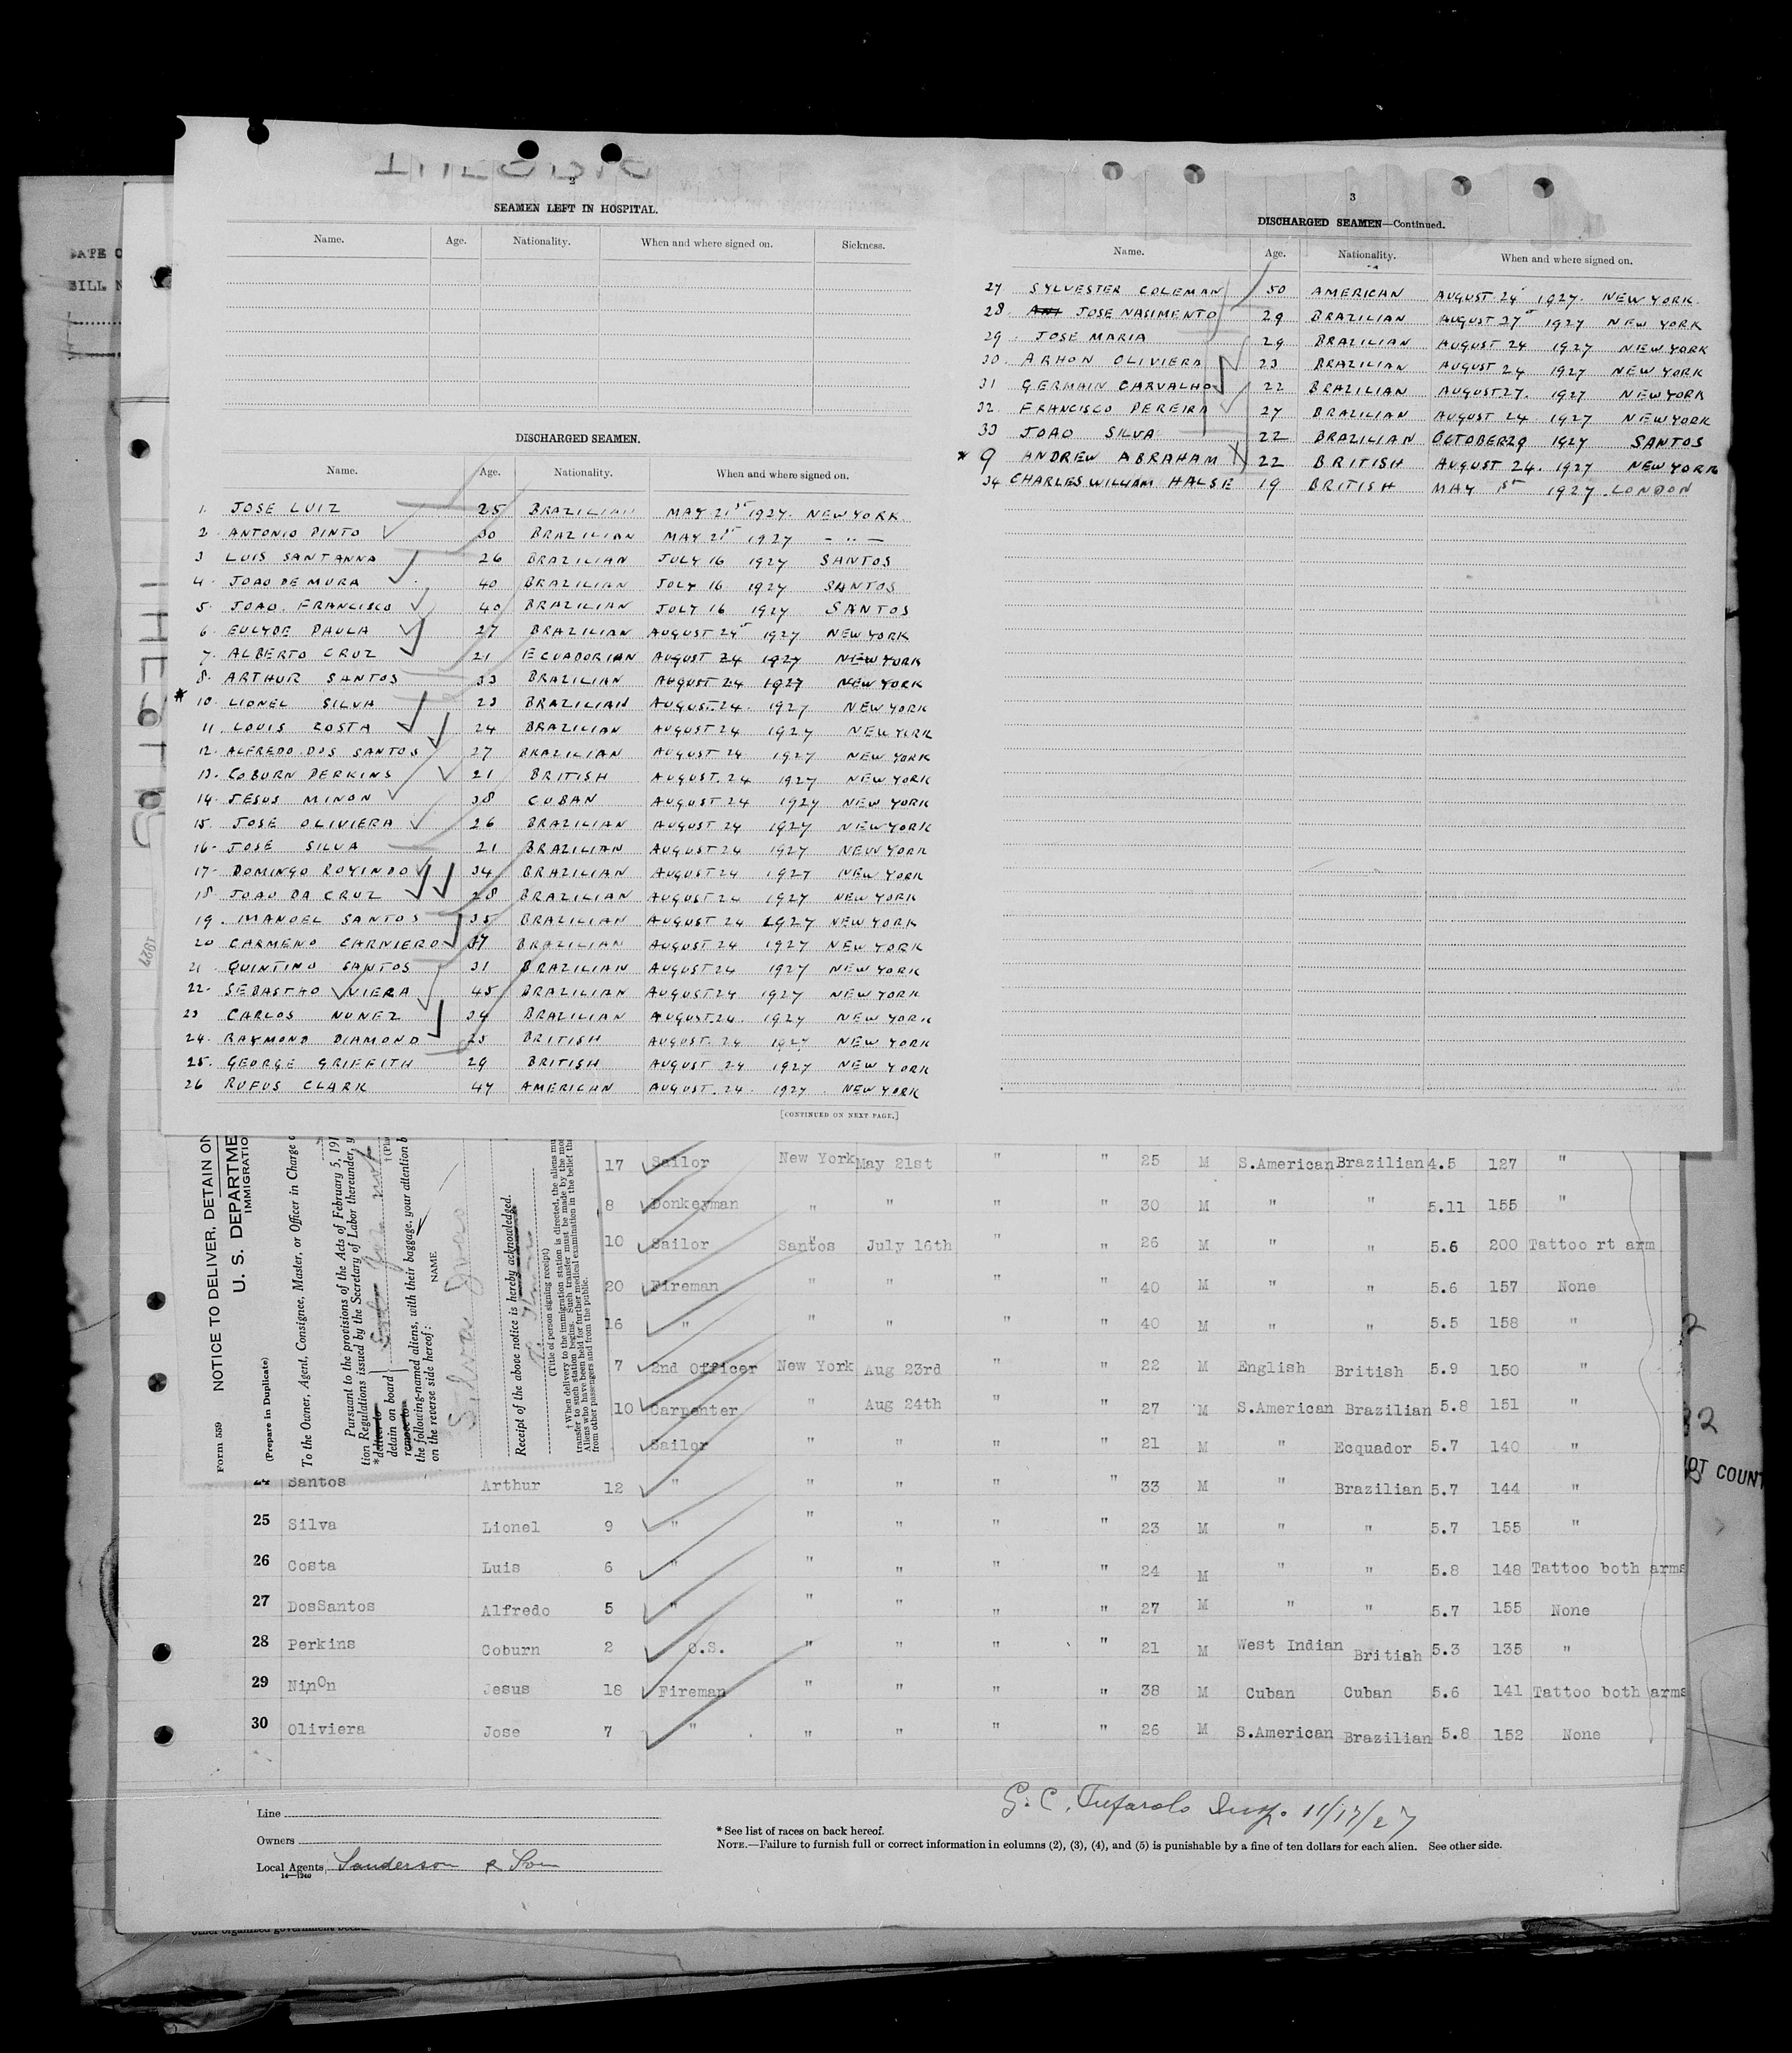 2
SEAMEN LEFT IN HOSPITAL.
Name. Age. Nationality. When and where signed on. Sickness.
DISCHARGED SEAMEN.
Name. Age. Nationality. When and where signed on.
1. JOSE LUIZ 25 BRAZILIAN MAY 21st 1927. NEW YORK.
2. ANTONIO PINTO 30 BRAZILIAN MAY 21st 1927 - " -
3 LUIS SANTANNA 26 BRAZILIAN JULY 16 1927 SANTOS
4. JOAO DE MURA 40 BRAZILIAN JULY 16 1927 SANTOS
5. JOAO. FRANCISCO 40 BRAZILIAN JULY 16 1927 SANTOS
6. EULYDE PAULA 27 BRAZILIAN AUGUST 24 1927 NEW YORK
7. ALBERTO CRUZ 21 ECUADORIAN AUGUST 24 1927 NEW YORK
8. ARTHUR SANTOS 33 BRAZILIAN AUGUST 24 1927 NEW YORK
* 10. LIONEL SILVA 23 BRAZILIAN AUGUST 24. 1927 NEW YORK
11. LOUIS COSTA 24 BRAZILIAN AUGUST 24 1927 NEW YORK
12. ALFREDO DOS SANTOS 27 BRAZILIAN AUGUST 24 1927 NEW YORK
13. COBURN PERKINS 21 BRITISH AUGUST. 24 1927 NEW YORK
14. JESUS MINON 38 CUBAN AUGUST 24 1927 NEW YORK
15. JOSE OLIVIERA 26 BRAZILIAN AUGUST 24 1927 NEW YORK
16. JOSE SILVA 21 BRAZILIAN AUGUST 24 1927 NEW YORK
17. DOMINGO ROYINDO 34 BRAZILIAN AUGUST 24 1927 NEW YORK
18. JOAO DA CRUZ 28 BRAZILIAN AUGUST 24 1927 NEW YORK
19. MANOEL SANTOS 35 BRAZILIAN AUGUST 24 1927 NEW YORK
20 CARMENO CARNIERO 37 BRAZILIAN AUGUST 24 1927 NEW YORK
21. QUINTINO SANTOS 31 BRAZILIAN AUGUST 24 1927 NEW YORK
22. SEBASTAO VIERA 45 BRAZILIAN AUGUST 24 1927 NEW YORK
23 CARLOS NUNEZ 34 BRAZILIAN AUGUST 24. 1927 NEW YORK
24. RAYMOND DIAMOND 25 BRITISH AUGUST. 24 1927 NEW YORK
25. GEORGE GRIFFITH 29 BRITISH AUGUST 24 1927 NEW YORK
26 RUFUS CLARK 47 AMERICAN AUGUST. 24. 1927. NEW YORK
[CONTINUED ON NEXT PAGE.]
3
DISCHARGED SEAMEN—Continued.
Name. Age. Nationality. When and where signed on.
27 SYLVESTER COLEMAN 50 AMERICAN AUGUST 24 1927. NEW YORK.
28. JOSE NASIMENTO 29 BRAZILIAN AUGUST 27 1927 NEW YORK
29. JOSE MARIA 29 BRAZILIAN AUGUST 24 1927 NEW YORK
30. ARHON OLIVIERA 23 BRAZILIAN AUGUST 24 1927 NEW YORK
31 GERMAIN CARVALHO 22 BRAZILIAN AUGUST 27. 1927 NEW YORK
32. FRANCISCO PEREIRA 27 BRAZILIAN AUGUST 24 1927 NEW YORK
33 JOAO SILVA 22 BRAZILIAN OCTOBER 29 1927 SANTOS
* 9 ANDREW ABRAHAM 22 BRITISH AUGUST 24. 1927 NEW YORK
34 CHARLES WILLIAM HALSE 19 BRITISH MAY 1st 1927. LONDON
Form 559
(Prepare in Duplicate)
NOTICE TO DELIVER, DETAIN ON
U. S. DEPARTME
IMMIGRATIO
To the Owner, Agent, Consignee, Master, or Officer in Charge
Pursuant to the provisions of the Acts of February 5, 191
tion Regulations issued by the Secretary of Labor thereunder, y
*deliver to
detain on board
remove to
the following-named aliens, with their baggage, your attention b
on the reverse side hereof:
NAME
Silva Joao
Receipt of the above notice is hereby acknowledged.
(Title of person signing receipt)
† When delivery to the immigration station is directed, the aliens mu
transfer to such station begins. Such transfer must be made by the mo
Aliens who have been held for further medical examination in the belief th
from other passengers and from the public.
17 Sailor New York May 21st " " 25 M S.American Brazilian 4.5 127 "
8 Donkeyman " " " 30 M " " 5.11 155 "
10 Sailor Santos July 16th " " 26 M " " 5.6 200 Tattoo rt arm
20 Fireman " " " " 40 M " " 5.6 157 None
16 " " " " " 40 M " " 5.5 158 "
7 2nd Officer New York Aug 23rd " " 22 M English British 5.9 150 "
10 Carpenter " Aug 24th " " 27 M S.American Brazilian 5.8 151 "
Sailor " " " " 21 M " Ecquador 5.7 140 "
24 Santos Arthur 12 " " " " " 33 M " Brazilian 5.7 144 "
25 Silva Lionel 9 " " " " " 23 M " " 5.7 155 "
26 Costa Luis 6 " " " " " 24 M " " 5.8 148 Tattoo both arms
27 DosSantos Alfredo 5 " " " " " 27 M " " 5.7 155 None
28 Perkins Coburn 2 O.S. " " " " 21 M West Indian British 5.3 135 "
29 NinOn Jesus 18 Fireman " " " " 38 M Cuban Cuban 5.6 141 Tattoo both arms
30 Oliviera Jose 7 " " " " " 26 M S.American Brazilian 5.8 152 None
OT COUNT
Line
Owners
Local Agents, Sanderson & Son
14—1240
G. C. Tufarolo Insp. 11/17/27
* See list of races on back hereof.
NOTE.—Failure to furnish full or correct information in columns (2), (3), (4), and (5) is punishable by a fine of ten dollars for each alien. See other side.